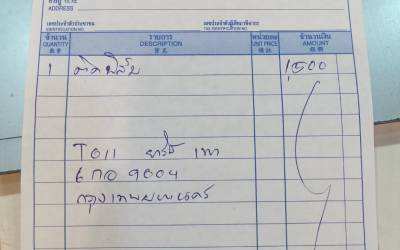 ที่อยู่
ADDRESS
เลขประจำตัวประชาชน
IDENTIFICATION NO.
เลขประจำตัวผู้เสียภาษีอากร
TAX IDENTIFICATION NO.
จำนวน รายการ หน่วยละ จำนวนเงิน
QUANTITY DESCRIPTION UNIT PRICE AMOUNT
1 ติดฟิล์ม 1,500
TOTT ยาริส เทา
6 กอ 9004
กรุงเทพมหานคร